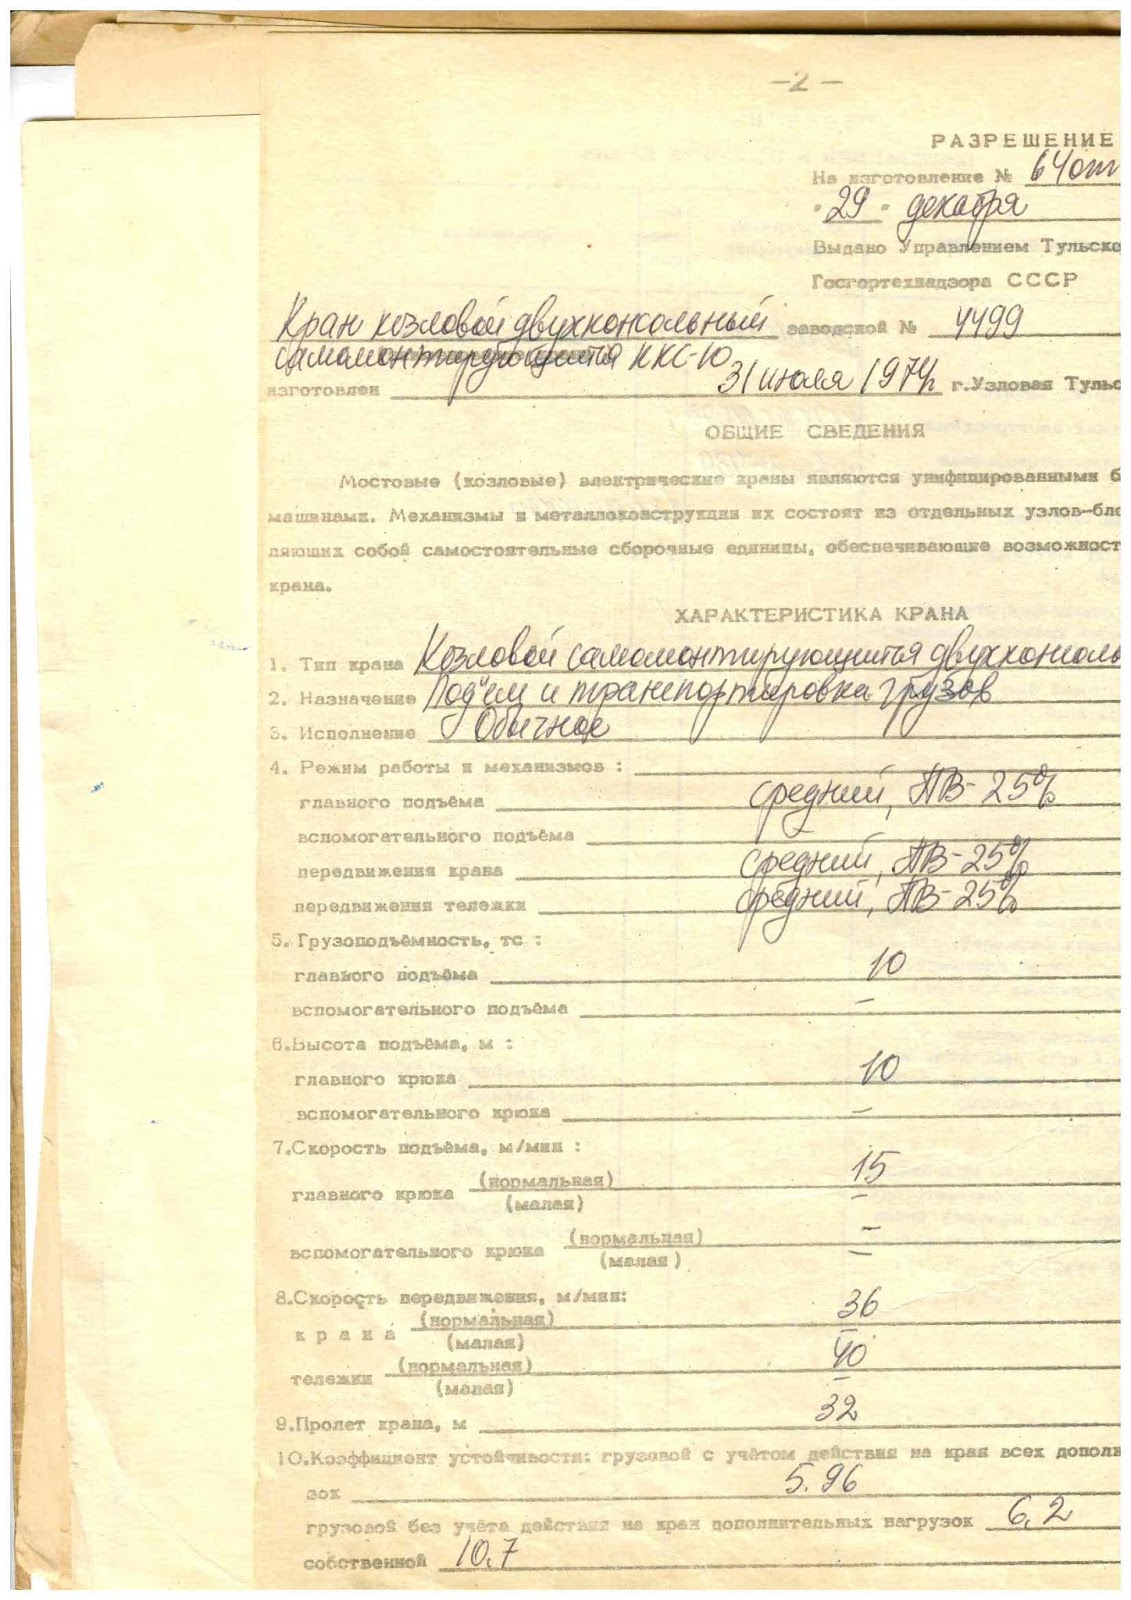 —2—
РАЗРЕШЕНИЕ
На изготовление № 64от
"29" декабря
Выдано Управлением Тульско
Госгортехнадзора СССР
Кран козловой двухконсольный заводской № 4499
самомонтирующийся ККС-10
изготовлен 31 июля 1974г г.Узловая Тульс
ОБЩИЕ СВЕДЕНИЯ
Мостовые (козловые) электрические краны являются унифицированными б
машинами. Механизмы и металлоконструкции их состоят из отдельных узлов-бло
ляющих собой самостоятельные сборочные единицы, обеспечивающие возможност
крана.
ХАРАКТЕРИСТИКА КРАНА
1. Тип крана Козловой самомонтирующийся двухконсоль
2. Назначение Под"ем и транспортировка грузов
3. Исполнение Обычное
4. Режим работы и механизмов :
главного подъёма средний, ПВ-25%
вспомогательного подъёма
передвижения крана средний, ПВ-25%
передвижения тележки средний, ПВ-25%
5. Грузоподъёмность, тс :
главного подъёма 10
вспомогательного подъёма —
6.Высота подъёма, м :
главного крюка 10
вспомогательного крюка —
7.Скорость подъёма, м/мин :
главного крюка (нормальная) 15
(малая) —
вспомогательного крюка (нормальная) —
(малая) —
8.Скорость передвижения, м/мин:
крана (нормальная) 36
(малая) —
тележки (нормальная) 40
(малая) —
9.Пролет крана, м 32
10.Коэффициент устойчивости: грузовой с учётом действия на кран всех дополн
зок 5.96
грузовой без учёта действия на кран дополнительных нагрузок 6,2
собственной 10,7